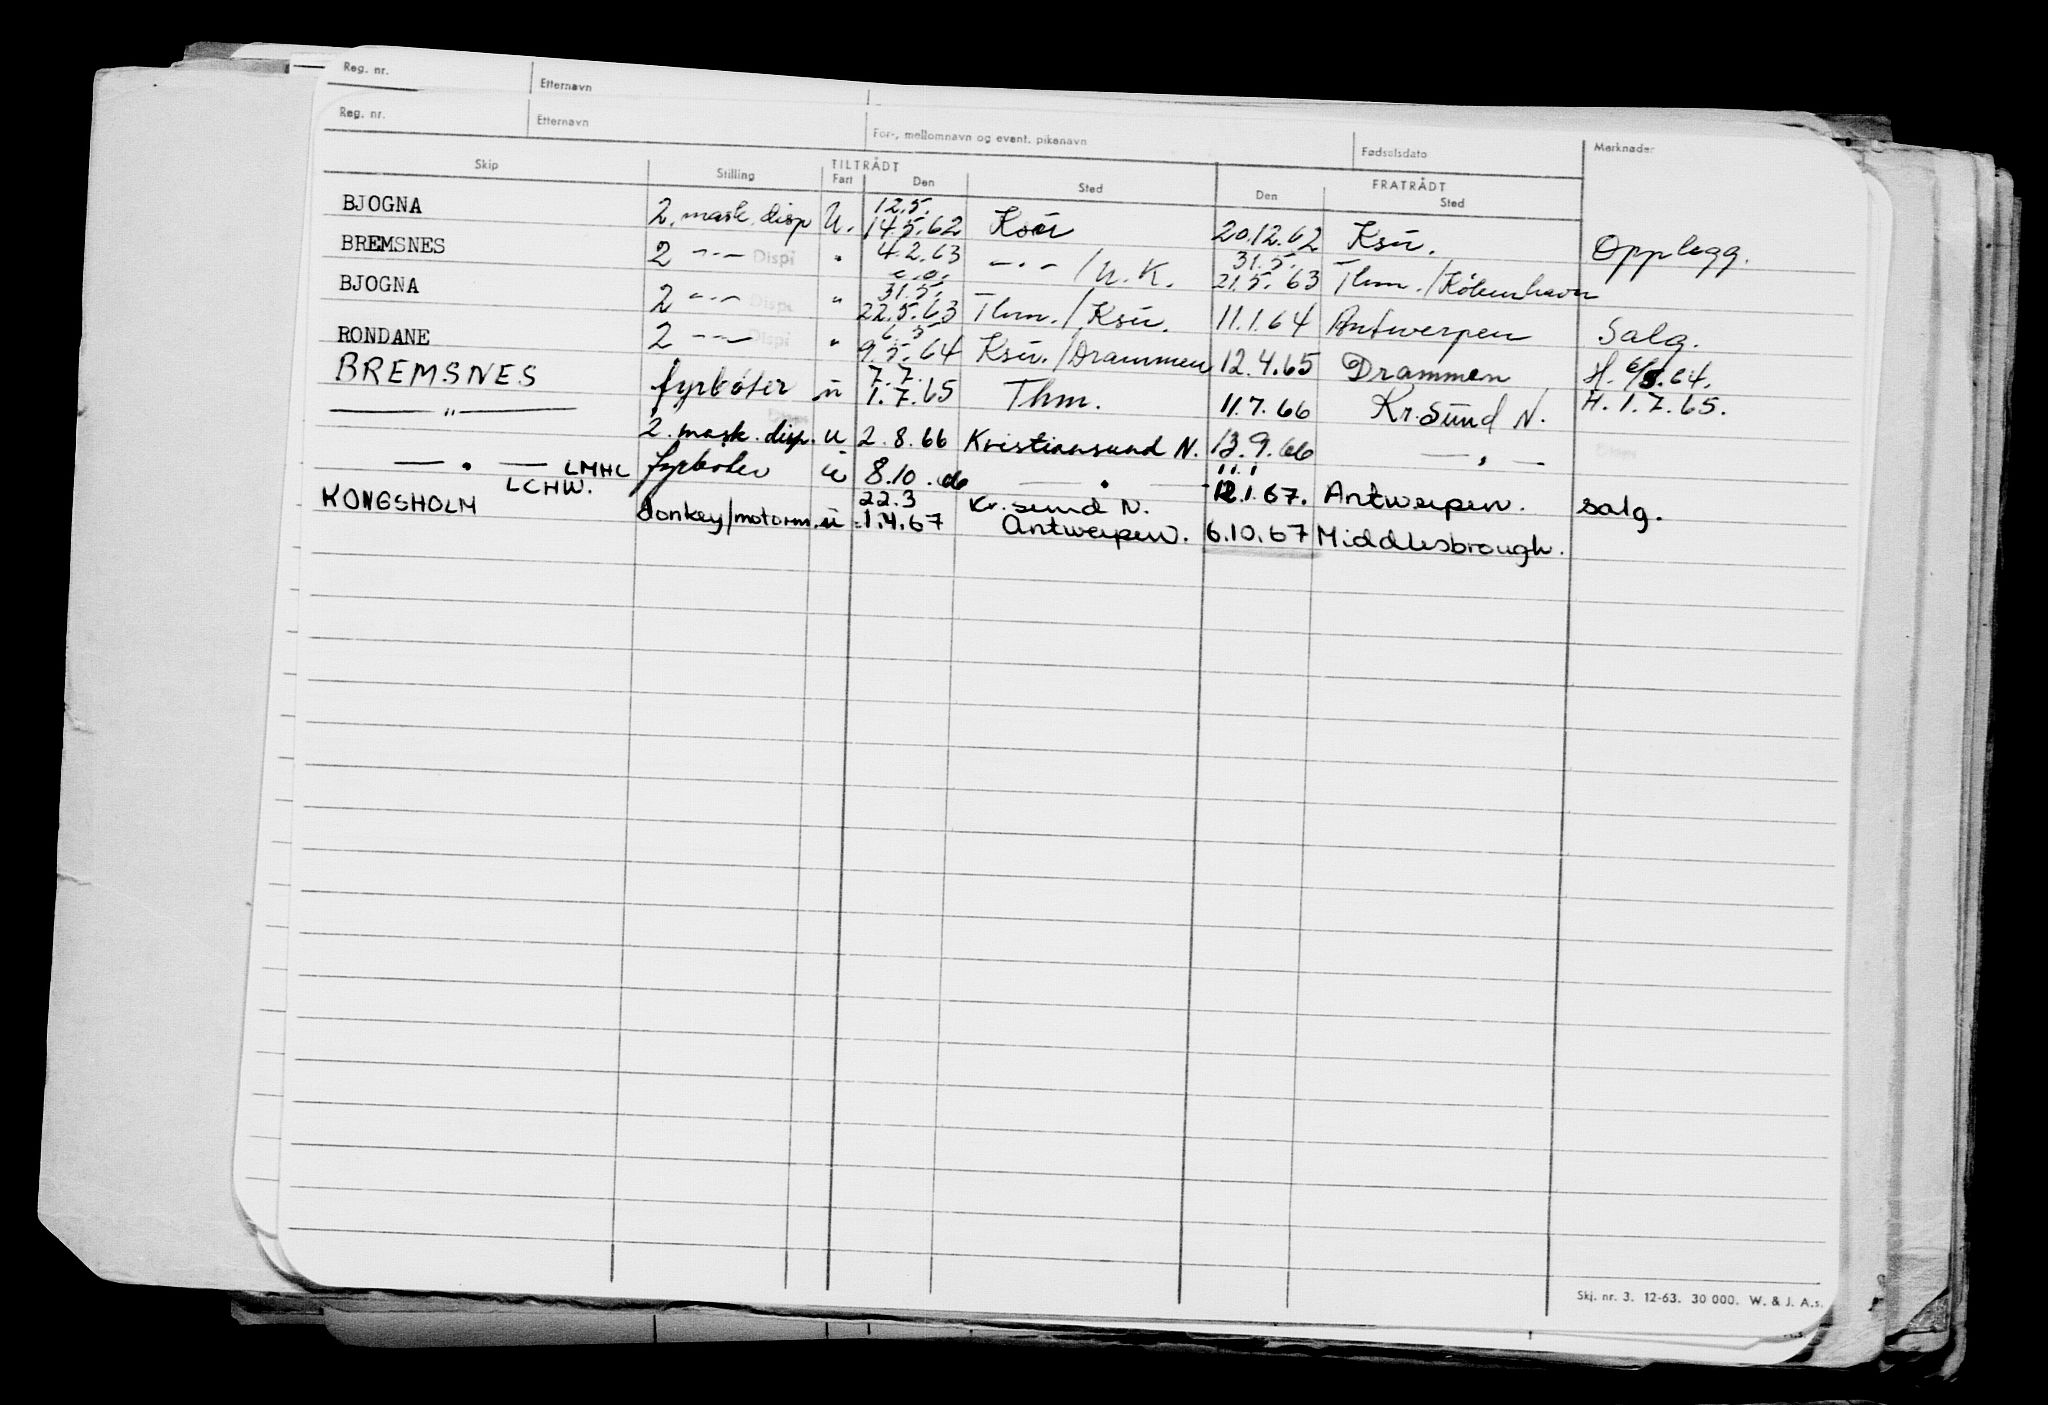 Reg. nr. Etternavn
Reg. nr. Etternavn For-, mellomnavn og event. pikenavn Fødselsdato Merknader
Skip Stilling TILTRÅDT Fart Den Sted FRATRÅDT Den Sted
BJOGNA 2. mask. disp U. 12.5. 14.5.62 Ksu 20.12.62 Ksu. Opplegg.
BREMSNES 2 -"- Dispi " 4.2.63 -"- / U.K. 31.5. 21.5.63 Thm./København
BJOGNA 2 -"- Dispi " 31.5. 22.5.63 Thm./Ksu. 11.1.64 Antwerpen Salg.
RONDANE 2 -"- Dispi " 6.5 9.5.64 Ksu./Drammen 12.4.65 Drammen H. 6/5.64.
BREMSNES fyrbøter u 7.7. 1.7.65 Thm. 11.7.66 Kr.sund N. H. 1.7.65.
-"- 2. mask. disp. u 2.8.66 Kristiansund N. 13.9.66 -"-
-"- LMHL fyrbøter u 8.10.66 -"- 11.1 12.1.67. Antwerpen. salg.
KONGSHOLM LCHW. donkey/motorm. u 22.3 1.4.67 Kr.sund N. Antwerpen. 6.10.67 Middlesbrough.
Skj. nr. 3. 12-63. 30 000. W. & J. A.s.
A.s.